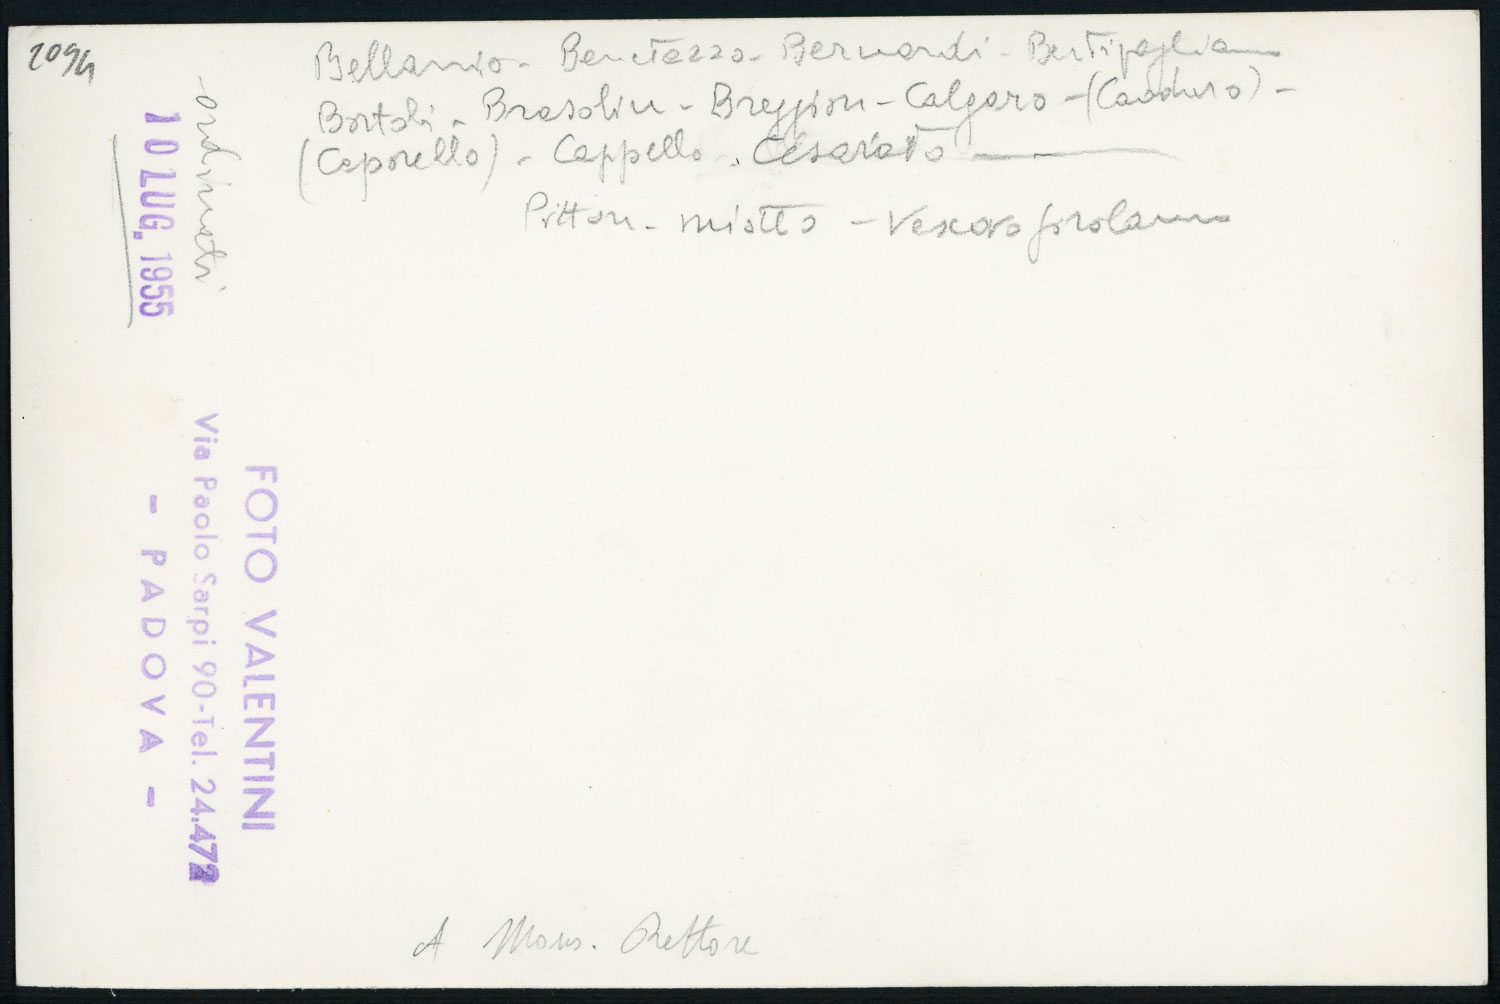 2094
Bellamio - Benetazzo - Bernardi - Bertipaglia
Bortoli - Brasolin - Breggion - Calgaro - (Cadduro) -
(Caporello) - Cappello - Cesarato
Pitton - Miotto - Vescovo Girolamo
- ordinati
10 LUG. 1955
FOTO VALENTINI
Via Paolo Sarpi 90-Tel. 24.472
- PADOVA -
A Mons. Rettore